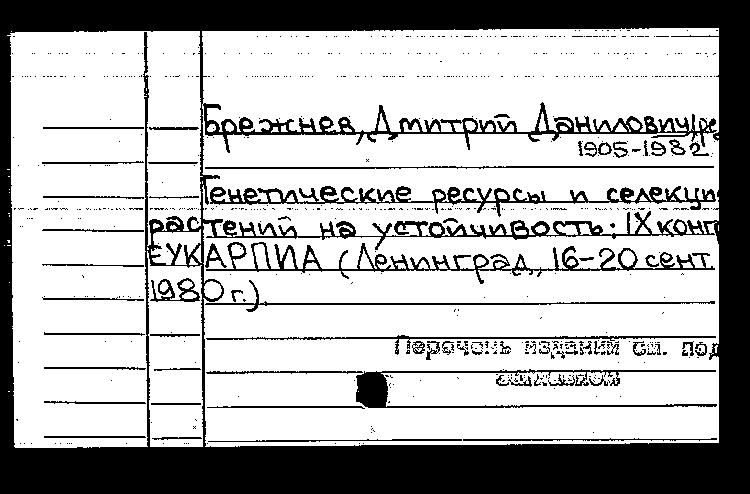 Брежнев, Дмитрий Данилович/ре
1905-1982
Генетические ресурсы и селекци
растений на устойчивость: IX конг
ЕУКАРПИА (Ленинград, 16-20 сент.
1980 г.).
Перечень изданий см. под
заглавием